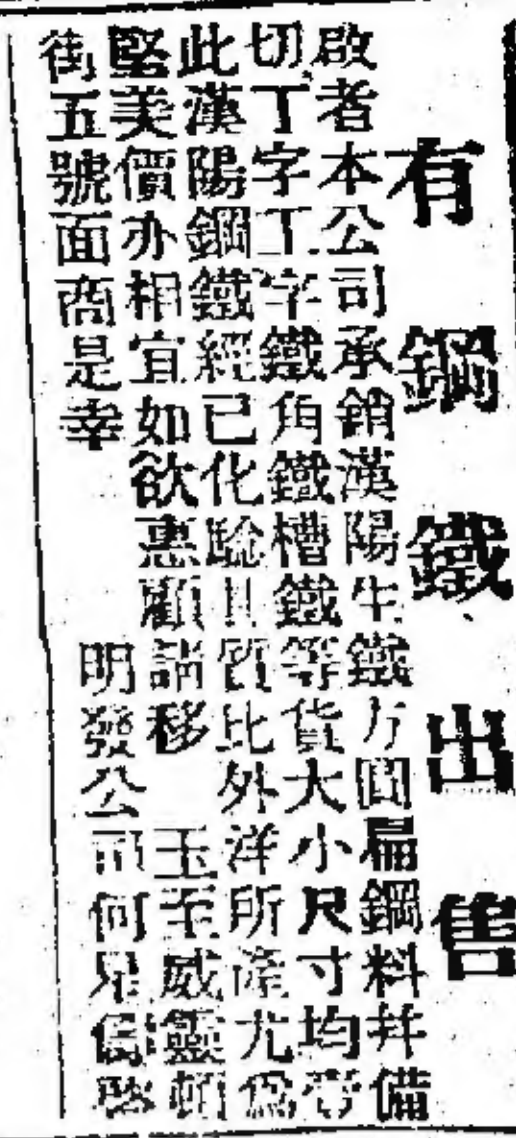 有鋼鐵出售
啟者本公司承銷漢陽生鐵方圓扁鋼料幷備
切丁字工字鐵角鐵槽鐵等貨大小尺寸均齊
此漢陽鋼鐵經已化騐其質比外洋所產尤爲
堅美價亦相宜如欲惠顧請移 玉至威靈頓
街五號面商是幸 明發公司何儔啓